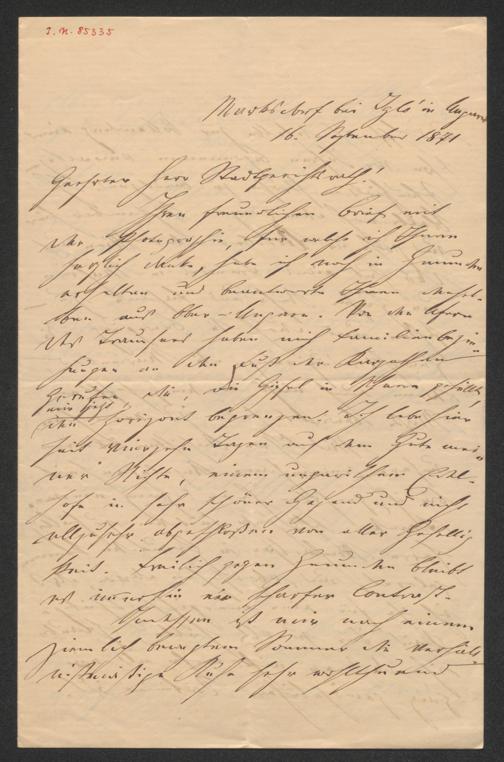 I. N. 85335
Marksdorf bei Igló in Ungarn
16. September 1871
Geehrter Herr Stadtgerichtsrath!
Ihren freundlichen Brief mit
der Photographie, für welche ich Ihnen
herzlich danke, habe ich noch in Gmunden
erhalten und beantworte Ihnen densel-
ben aus Ober-Ungarn. Von den Ufern
des Traunsees haben mich Familienbezie-
hungen an den Fuß der Karpathen
gerufen, die, die Gipfel in Schnee gehüllt,
mir jetzt den Horizont begrenzen. Ich lebe hier
seit vierzehn Tagen auf dem Gute mei-
ner Nichte, einem ungarischen Edel-
hofe in sehr schöner Gegend und nicht
allzusehr abgeschlossen von aller Gesellig-
keit. Freilich gegen Gmunden bleibt
es immerhin ein scharfer Contrast.
Indessen ist mir nach einem
ziemlich bewegten Sommer die verhält-
nißmäßige Ruhe sehr wohlthuend